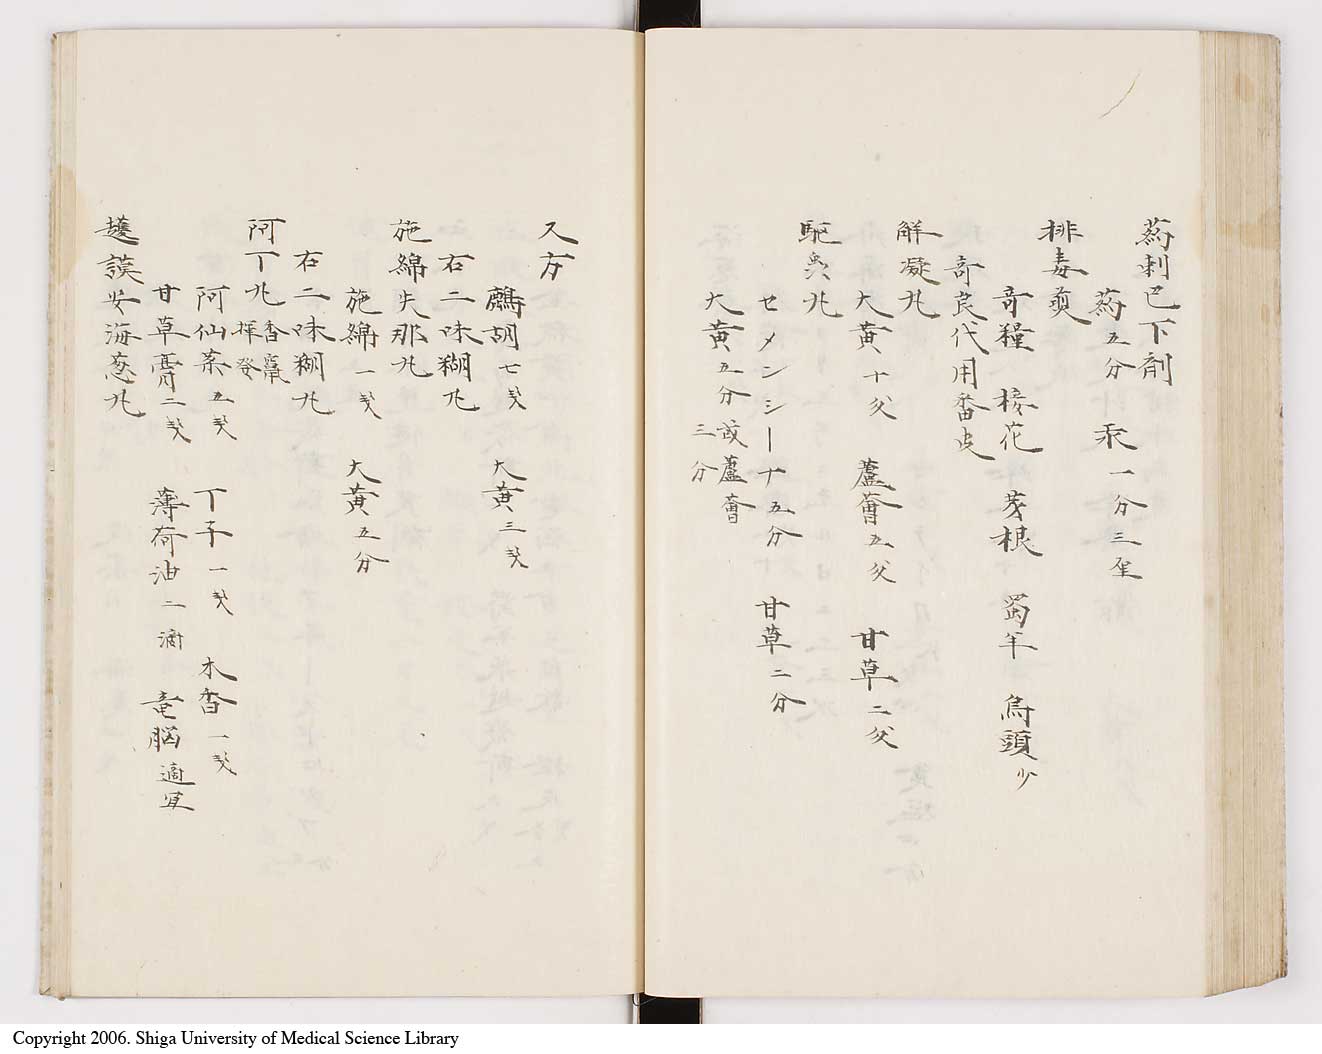 葯剌巴下剤
葯五分 汞一分三厘
排毒煎
奇糧 接花 茅根 蜀羊 烏頭少
奇良代用番皮
解凝丸
大黄十父 蘆薈五父 甘草二父
駆虫丸
セメンシーナ五分 甘草二分
大黄五分或蘆薈三分
又方
鷓胡七戔 大黄三戔
右二味糊丸
施綿失那丸
施綿一戔 大黄五分
右二味糊丸
阿丁丸 香竄揮発
阿仙薬五戔 丁子一戔 木香一戔
甘草膏二戔 薄荷油二滴 竜脳適宜
護謨安海葱丸
Copyright 2006. Shiga University of Medical Science Library